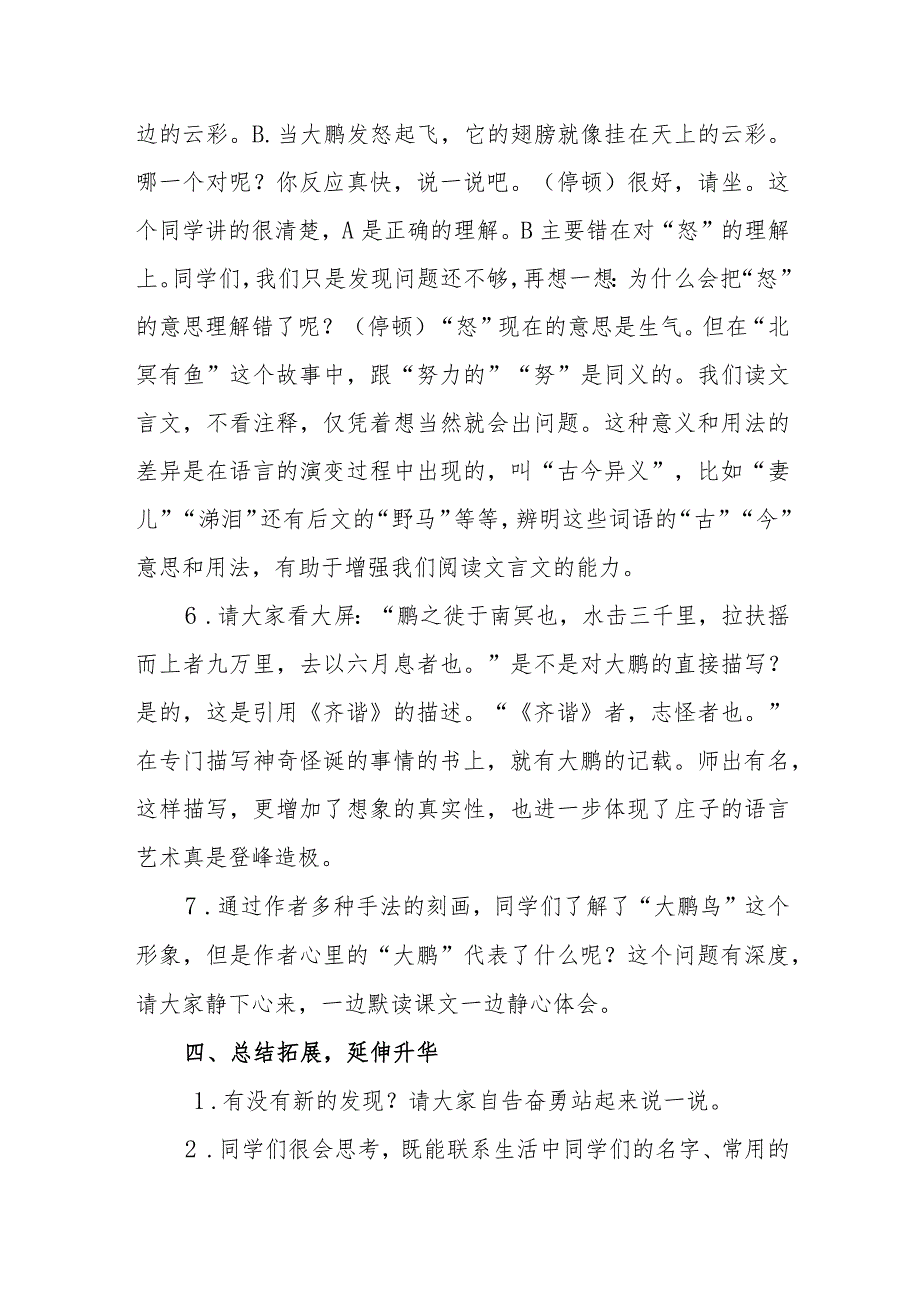 边的云彩。B.当大鹏发怒起飞，它的翅膀就像挂在天上的云彩。
哪一个对呢？你反应真快，说一说吧。（停顿）很好，请坐。这
个同学讲的很清楚，A 是正确的理解。B 主要错在对“怒”的理解
上。同学们，我们只是发现问题还不够，再想一想：为什么会把“怒”
的意思理解错了呢？（停顿）“怒”现在的意思是生气。但在“北
冥有鱼”这个故事中，跟“努力的”“努”是同义的。我们读文
言文，不看注释，仅凭着想当然就会出问题。这种意义和用法的
差异是在语言的演变过程中出现的，叫“古今异义”，比如“妻
儿”“涕泪”还有后文的“野马”等等，辨明这些词语的“古”“今”
意思和用法，有助于增强我们阅读文言文的能力。
6.请大家看大屏：“鹏之徙于南冥也，水击三千里，拉扶摇
而上者九万里，去以六月息者也。”是不是对大鹏的直接描写？
是的，这是引用《齐谐》的描述。“《齐谐》者，志怪者也。”
在专门描写神奇怪诞的事情的书上，就有大鹏的记载。师出有名，
这样描写，更增加了想象的真实性，也进一步体现了庄子的语言
艺术真是登峰造极。
7.通过作者多种手法的刻画，同学们了解了“大鹏鸟”这个
形象，但是作者心里的“大鹏”代表了什么呢？这个问题有深度，
请大家静下心来，一边默读课文一边静心体会。
四、总结拓展，延伸升华
1.有没有新的发现？请大家自告奋勇站起来说一说。
2.同学们很会思考，既能联系生活中同学们的名字、常用的